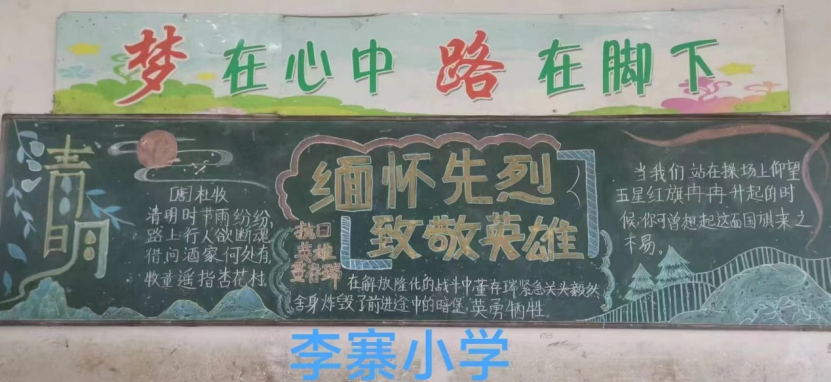 梦在心中 路在脚下
清明
[唐]杜牧
清明时节雨纷纷
路上行人欲断魂
借问酒家何处有
牧童遥指杏花村
缅怀先烈
致敬英雄
抗日
英雄
董存瑞
在解放隆化的战斗中董存瑞紧急关头毅然
舍身炸毁了前进途中的暗堡,英勇牺牲
当我们站在操场上仰望
五星红旗冉冉升起的时
候,你可曾想起这面国旗来之
不易。
李寨小学